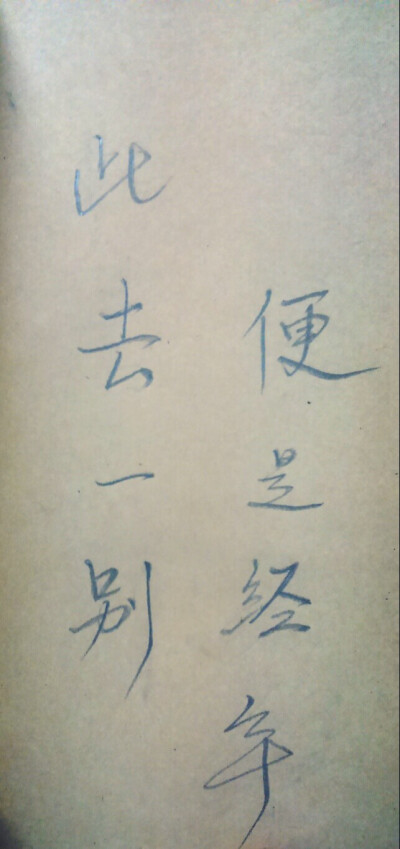 此去一别
便是经年